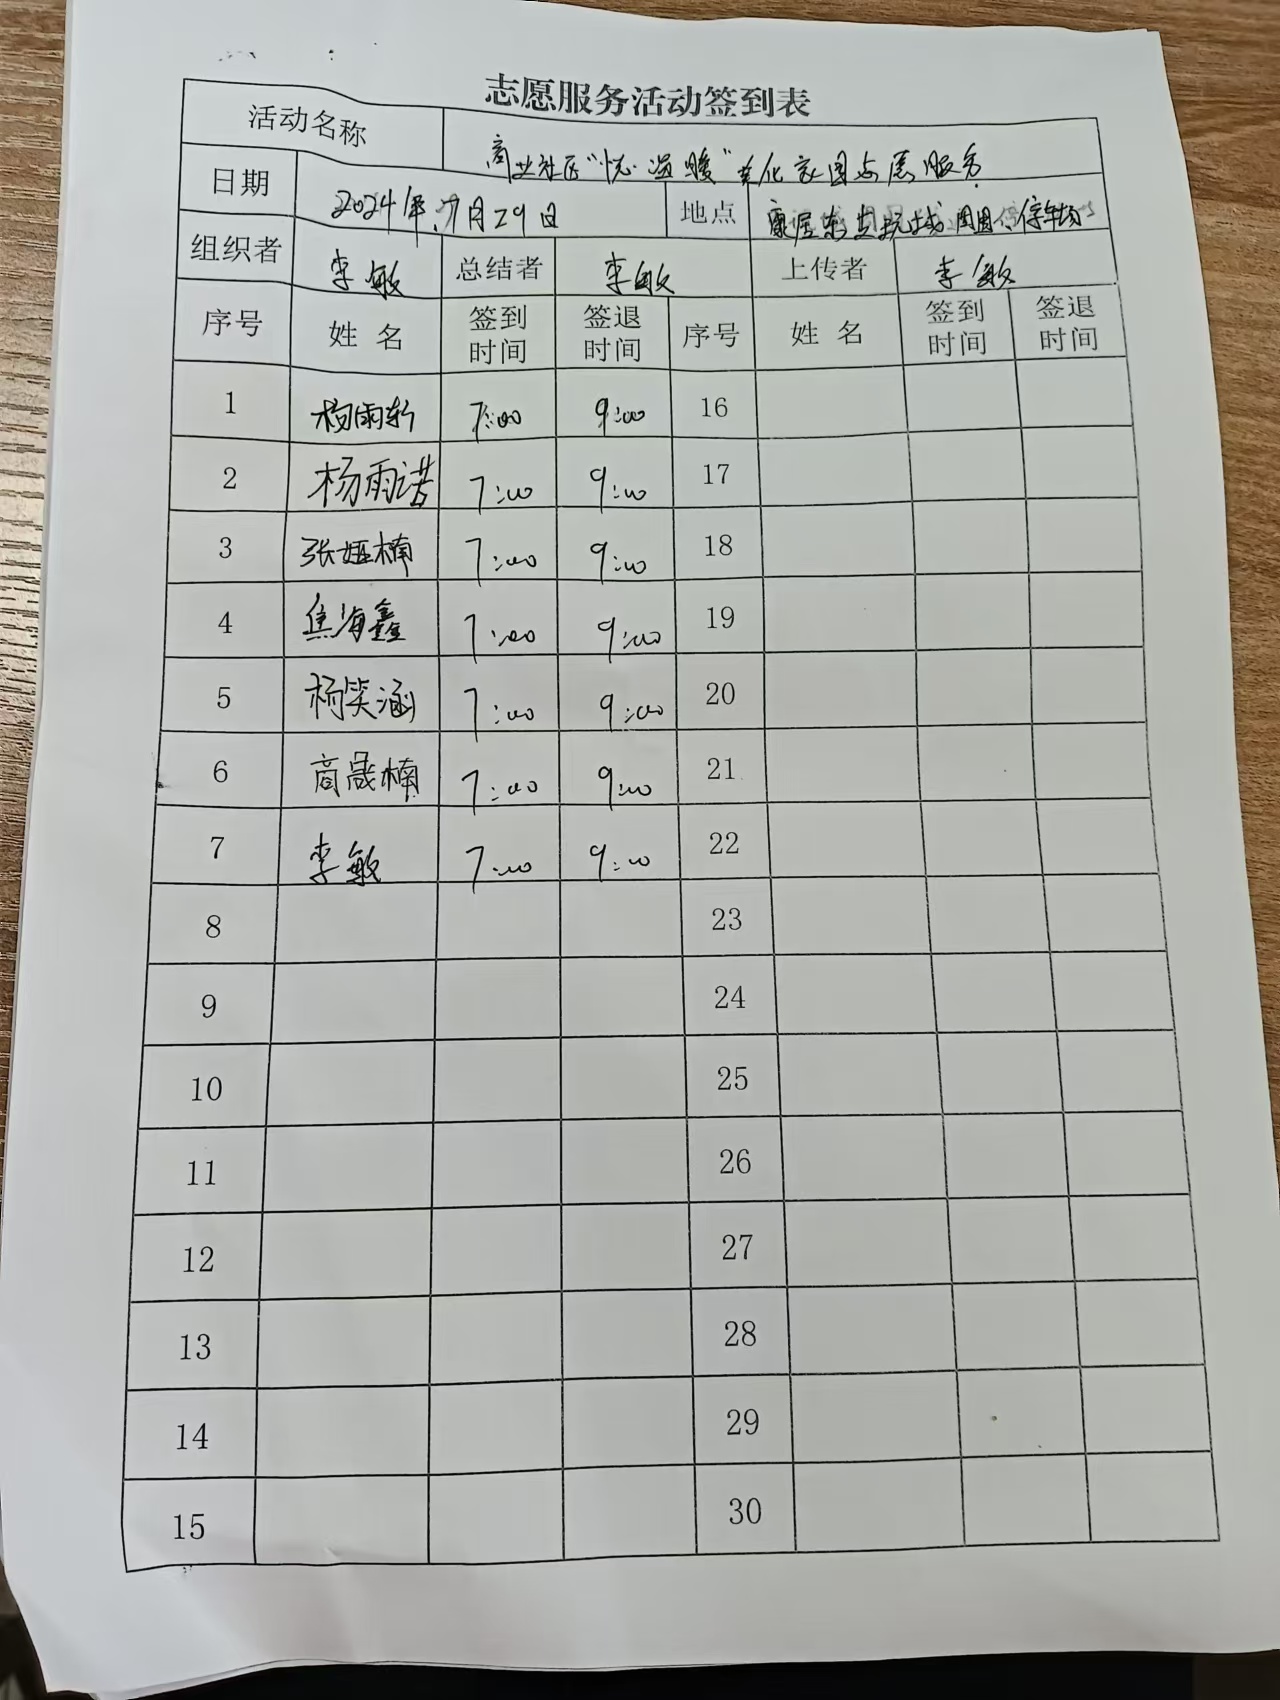 志愿服务活动签到表
活动名称 商业社区“ 温暖”美化家园志愿服务
日期 2024年.7月29日 地点 康居东 城周围、停车场
组织者 李敏 总结者 李敏 上传者 李敏
序号 姓名 签到时间 签退时间 序号 姓名 签到时间 签退时间
1 杨雨轩 7:00 9:00 16
2 杨雨诺 7:00 9:00 17
3 张娅楠 7:00 9:00 18
4 焦海鑫 7:00 9:00 19
5 杨笑涵 7:00 9:00 20
6 商晟楠 7:00 9:00 21
7 李敏 7:00 9:00 22
8 23
9 24
10 25
11 26
12 27
13 28
14 29
15 30